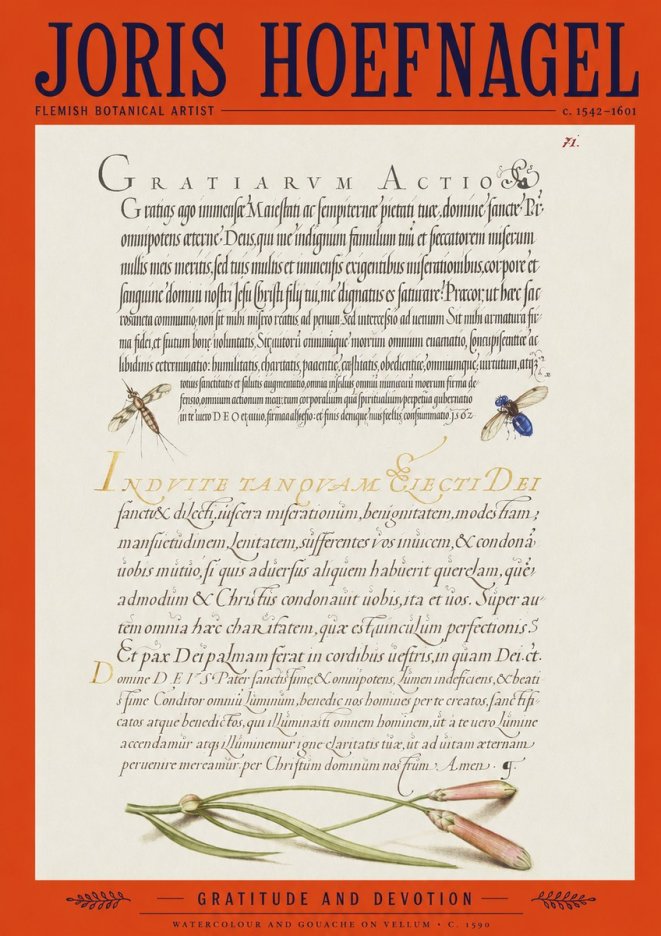 JORIS HOEFNAGEL
FLEMISH BOTANICAL ARTIST
c. 1542–1601
71.
GRATIARVM ACTIO
Gratias ago immensæ Maiestati ac sempiternæ pietati tuæ, domine sancte Pr̄
omnipotens æterne Deus, qui me indignum famulum tuū et peccatorem miserum
nullis meis meritis, sed tuis multis et immensis exigentibus miserationibus, corpore et
sanguine domini nostri Jesu Christi filij tui, me dignatus es saturare. Præcor, ut hæc sac
rosancta communio, non sit mihi misero reatus ad penam. Sed intercessio ad ueniam Sit mihi armatura fir-
ma fidei, et scutum bonæ voluntatis, Sit uitiorū omniumque morum omnium euacuatio, Concupiscentiæ ac
libidinis exterminatio: humilitatis, charitatis, patientiæ, castitatis, obedientiæ, omniumque, uirtutum, atqȝ
totius sanctitatis et salutis augmentatio, omnia insidijs omniū inimicorū meorum firma de
fensio, omnium actionum mearum corporalium quā spiritualium perpetua gubernatio
in te uero DEO et uiuo, firma adhesio: et finis denique mei fœlix consummatio. 1562
INDVITE TANQVAM ELECTI DEI
sancti & dilecti, uiscera miserationum, benignitatem, modestiam,
mansuetudinem, Lenitatem, sufferentes vos inuicem, & condonā
uobis mutuo, si quis aduersus aliquem habuerit querelam, quē
admodum & Christus condonauit uobis, ita et uos. Super au-
tem omnia hæc charitatem, quæ est uinculum perfectionis
Et pax Dei palmam ferat in cordibus uestris, in quam Dei. ct.
Domine DEVS Pater sanctissime, & omnipotens, Lumen indeficiens, & beati
ssime Conditor omniū Luminum, benedic nos homines per te creatos, sanctifi-
catos atque benedictos, qui illuminasti omnem hominem, ut a te uero Lumine
accendamur atqȝ illuminemur igne claritatis tuæ, ut ad uitam æternam
peruenire mereamur. per Christum dominum nostrum. Amen.
GRATITUDE AND DEVOTION
WATERCOLOUR AND GOUACHE ON VELLUM • C. 1590